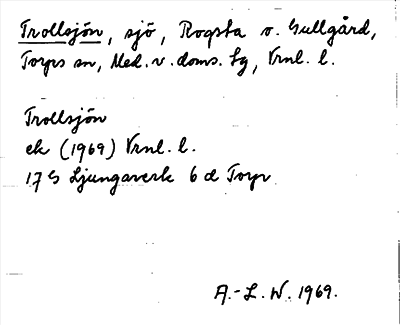 Trollsjön, sjö, Rogsta o. Gullgård,
Torps sn, Med. v. doms. tg, Vrnl. l.
Trollsjön
ek (1969) Vrnl. l.
17 G Ljungaverk 6 d Torp
A.-L. W. 1969.